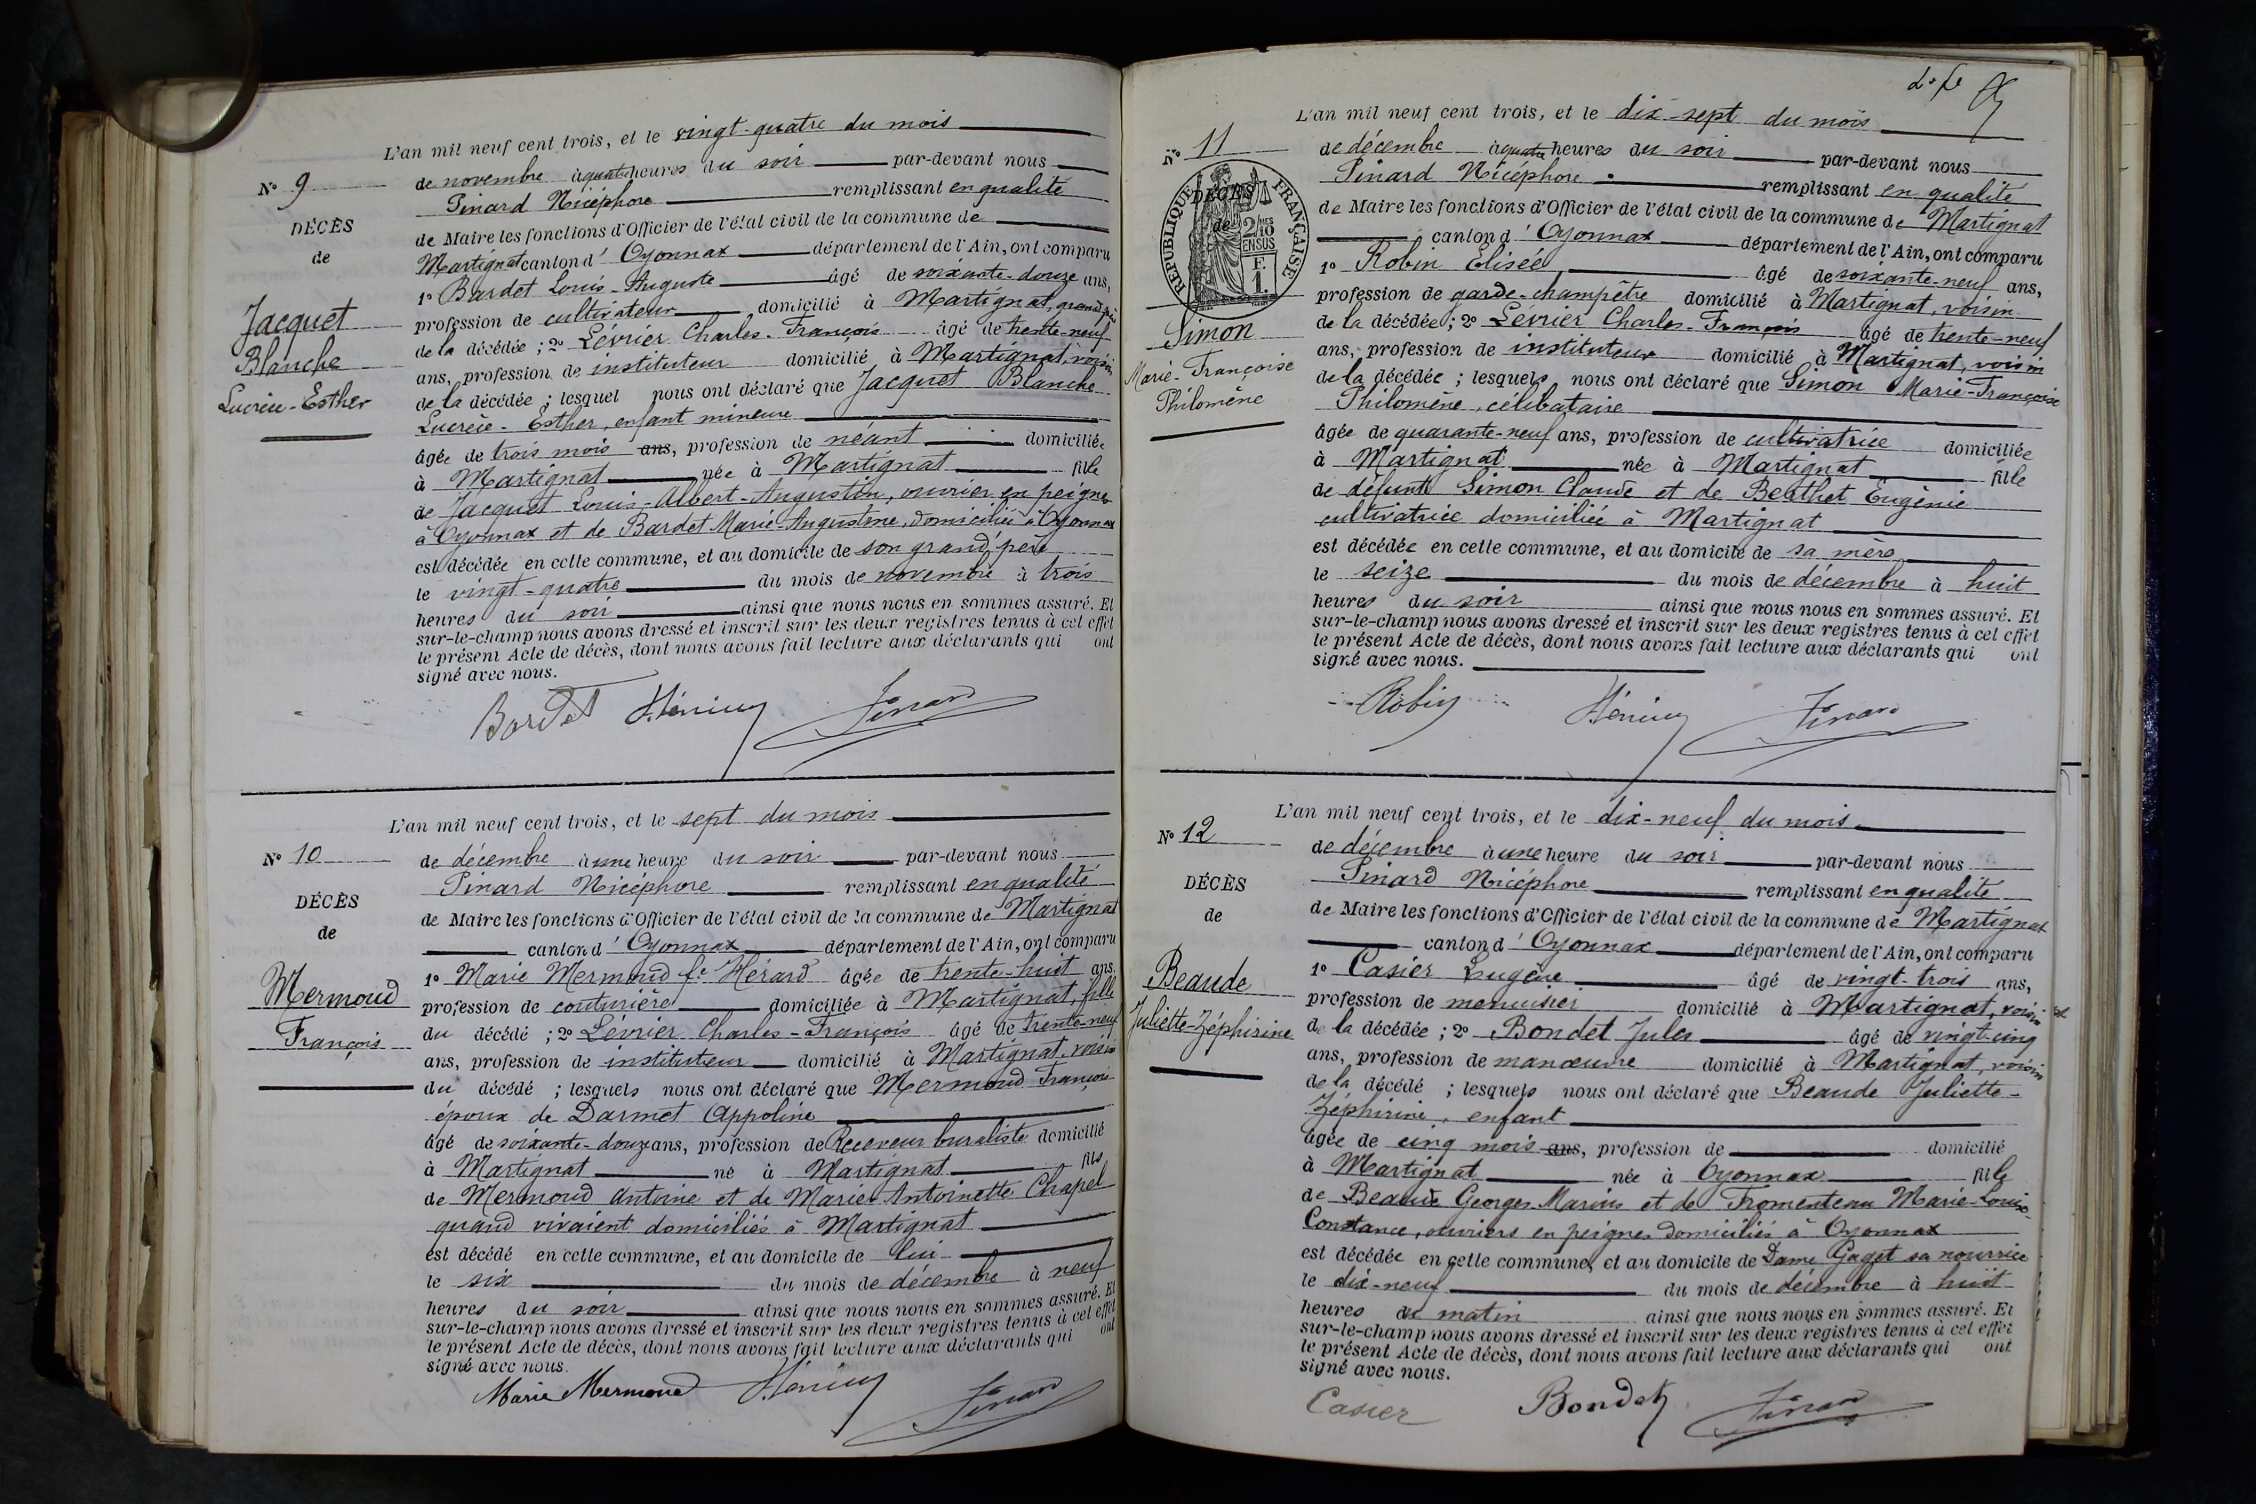 L'an mil neuf cent trois, et le vingt-quatre du mois
N° 9
de novembre à quatre heures du soir par-devant nous
Pinard Nicéphore remplissant en qualité
DÉCÈS
de Maire les fonctions d'Officier de l'état civil de la commune de
de
Martignat canton d'Oyonnax département de l'Ain, ont comparu
1° Bardet Louis-Auguste âgé de soixante-douze ans,
Jacquet
profession de cultivateur domicilié à Martignat, grand père
de la décédée ; 2° Lévrier Charles-François âgé de trente-neuf
Blanche
ans, profession de instituteur domicilié à Martignat, voisin
Lucrèce-Esther
de la décédée ; lesquel nous ont déclaré que Jacquet Blanche
Lucrèce-Esther, enfant mineure
âgée de trois mois ans, profession de néant domiciliée
à Martignat née à Martignat fille
de Jacquet Louis-Albert-Augustin, ouvrier en peignes
à Oyonnax et de Bardet Marie-Augustine, domiciliée à Oyonnax
est décédée en cette commune, et au domicile de son grand'père
le vingt-quatre du mois de novembre à trois
heures du soir ainsi que nous nous en sommes assuré. Et
sur-le-champ nous avons dressé et inscrit sur les deux registres tenus à cet effet
le présent Acte de décès, dont nous avons fait lecture aux déclarants qui ont
signé avec nous.
Bardet Pinard
L'an mil neuf cent trois, et le sept du mois
N° 10
de décembre à une heure du soir par-devant nous
Pinard Nicéphore remplissant en qualité
DÉCÈS
de Maire les fonctions d'Officier de l'état civil de la commune de Martignat
de
canton d'Oyonnax département de l'Ain, ont comparu
1° Marie Mermoud fe Hérard âgée de trente-huit ans,
Mermoud
profession de couturière domiciliée à Martignat, fille
François
du décédé ; 2° Lévrier Charles-François âgé de trente-neuf
ans, profession de instituteur domicilié à Martignat, voisin
du décédé ; lesquels nous ont déclaré que Mermoud François
époux de Darmet Appoline
âgé de soixante-douze ans, profession de Receveur buraliste domicilié
à Martignat né à Martignat fils
de Mermoud Antoine et de Marie-Antoinette Chapel
quand vivaient domiciliés à Martignat
est décédé en cette commune, et au domicile de lui
le six du mois de décembre à neuf
heures du soir ainsi que nous nous en sommes assuré. Et
sur-le-champ nous avons dressé et inscrit sur les deux registres tenus à cet effet
le présent Acte de décès, dont nous avons fait lecture aux déclarants qui ont
signé avec nous.
Marie Mermoud Pinard
L'an mil neuf cent trois, et le dix-sept du mois
N° 11
de décembre à quatre heures du soir par-devant nous
Pinard Nicéphore remplissant en qualité
DÉCÈS
de Maire les fonctions d'Officier de l'état civil de la commune de Martignat
de
RÉPUBLIQUE FRANÇAISE
2/10 EN SUS
F. 1.
canton d'Oyonnax département de l'Ain, ont comparu
1° Robin Elisée, âgé de soixante-neuf ans,
profession de garde-champêtre domicilié à Martignat, voisin
Simon
de la décédée ; 2° Lévrier Charles-François âgé de trente-neuf
ans, profession de instituteur domicilié à Martignat, voisin
Marie-Françoise
de la décédée ; lesquels nous ont déclaré que Simon Marie-Françoise
Philomène
Philomène, célibataire
âgée de quarante-neuf ans, profession de cultivatrice domiciliée
à Martignat née à Martignat fille
de défunt Simon Claude et de Berthet Eugénie
cultivatrice domiciliée à Martignat
est décédée en cette commune, et au domicile de sa mère
le seize du mois de décembre à huit
heures du soir ainsi que nous nous en sommes assuré. Et
sur-le-champ nous avons dressé et inscrit sur les deux registres tenus à cet effet
le présent Acte de décès, dont nous avons fait lecture aux déclarants qui ont
signé avec nous.
Robin Pinard
L'an mil neuf cent trois, et le dix-neuf du mois
N° 12
de décembre à une heure du soir par-devant nous
Pinard Nicéphore remplissant en qualité
DÉCÈS
de Maire les fonctions d'Officier de l'état civil de la commune de Martignat
de
canton d'Oyonnax département de l'Ain, ont comparu
1° Casier Eugène âgé de vingt-trois ans,
Beaude
profession de menuisier domicilié à Martignat, voisin
Juliette-Zéphirine
de la décédée ; 2° Bondet Jules âgé de vingt-cinq
ans, profession de manœuvre domicilié à Martignat, voisin
de la décédé ; lesquels nous ont déclaré que Beaude Juliette-
Zéphirine, enfant
âgée de cinq mois ans, profession de domicilié
à Martignat née à Oyonnax fille
de Beaude Georges-Marius et de Fromenteau Marie-Louise-
Constance, ouvriers en peignes domiciliés à Oyonnax
est décédée en cette commune, et au domicile de Dame Gaget sa nourrice
le dix-neuf du mois de décembre à huit
heures du matin ainsi que nous nous en sommes assuré. Et
sur-le-champ nous avons dressé et inscrit sur les deux registres tenus à cet effet
le présent Acte de décès, dont nous avons fait lecture aux déclarants qui ont
signé avec nous.
Casier Bondet Pinard